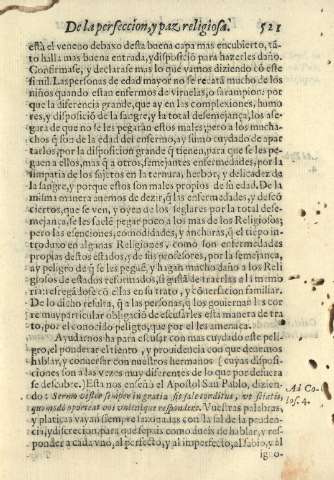 De la perfeccion, y paz religiosa. 521
està el veneno debaxo desta buena capa mas encubierto, tā-
to halla mas buena entrada, y disposiciō para hazerles daño.
Confirmase, y declarase mas lo que vamos diziendo cō este
simil. Las personas de edad mayor no se recatā mucho de los
niños quando estan enfermos de viruelas, o sarampion: por
que la diferencia grande, que ay en las complexiones, humo
res, y disposiciō de la sangre, y la total desemejança, los ase-
gura de que no se les pegarān estos males; pero a los mucha-
chos q̄ son de la edad del enfermo, ay sumo cuydado de apar
tarlos, por la disposicion grande q̄ tienen, para que se les pe-
guen a ellos, mas q̄ a otros, semejantes enfermedades, por la
simpatia de los sujetos en la ternura, heruor, y delicadez de
la sangre, y porque estos son males propios de su edad. De la
misma manera auemos de dezir, q̄ las enfermedades, y desco
ciertos, que se ven, y oyen de los seglares por la total dese-
mejança, se les suele pegar poco a los mas de los Religiosos;
pero las esenciones, comodidades, y anchuras, q̄ el tiēpo in-
troduxo en algunas Religiones, como son enfermedades
propias destos estados, y de sus profesores, por la semejança,
ay peligro de q̄ se les peguē, y hagan mucho daño a los Reli
giosos de estados reformados, si gustā de traerlas a si mismo
rias refregādose cō ellas en su trato, y cōuersacion familiar.
De lo dicho resulta, q̄ a las personas, q̄ los gouiernan les cor
re muy particular obligaciō de escusarles esta manera de tra
to, por el conocido peligro, que por el les amenaça.
Ayudarnos ha para escusar con mas cuydado este peli-
gro, el ponderar el tiento, y prouidencia con que deuemos
hablar, y conuersar con nuestros hermanos (cuyas disposi-
ciones son a las vezes muy diferentes de lo que por defuera
se descubre.) Esta nos enseña el Apostol San Pablo, dizien-
do: Sermo vester semper in gratia sit sale conditus, vt sciatis
quomodo oporteat vos vnicuique respondere. Vuestras palabras,
y platicas vayan siempre sazonadas con la sal de la pruden-
cia, y discrecion, para que sepais como aueis de hablar, y res-
ponder a cada vno, al perfecto, y al imperfecto, al sabio, y al
igno-
Ad Co-
los. 4.